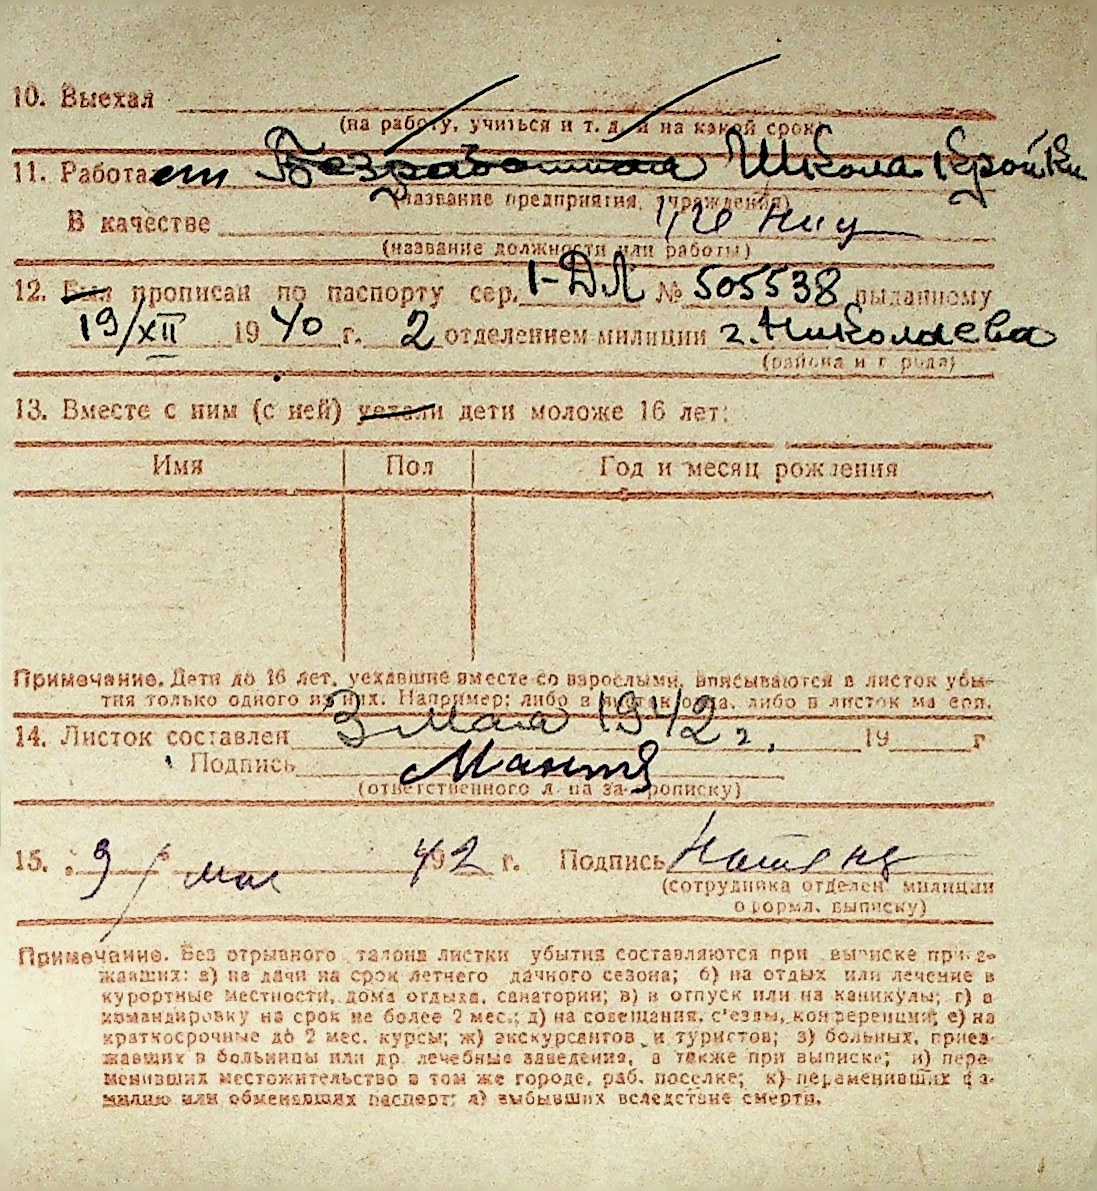 10. Выехал
(на работу, учиться и т. д. и на какой срок)
11. Работает Безработная Школа Кройки
(название предприятия, учреждения)
В качестве учениц
(название должности или работы)
12. Был прописан по паспорту сер. I-ДЛ № 505538 выданному
19/XII 1940 г. 2 отделением милиции г. Николаева
(района и города)
13. Вместе с ним (с ней) уехали дети моложе 16 лет:
Имя Пол Год и месяц рождения
Примечание. Дети до 16 лет, уехавшие вместе со взрослыми, вписываются в листок убы-
тия только одного из них. Например: либо в листок отца, либо в листок матери.
14. Листок составлен 3 мая 1942 г. 19 г
Подпись
(ответственного л-ца за прописку)
15. 9 / мая 1942 г. Подпись
(сотрудника отделен. милиции
оформл. выписку)
Примечание. Без отрывного талона листки убытия составляются при выписке приез-
жавших: а) на дачи на срок летнего дачного сезона; б) на отдых или лечение в
курортные местности, дома отдыха, санатории; в) в отпуск или на каникулы; г) в
командировку на срок не более 2 мес.; д) на совещания, с'езды, конференции; е) на
краткосрочные до 2 мес. курсы; ж) экскурсантов и туристов; з) больных, приез-
жавших в больницы или др. лечебные заведения, а также при выписке; и) пере-
менивших местожительство в том же городе, раб. поселке; к) переменивших фа-
милию или обменявших паспорт; л) выбывших вследствие смерти.